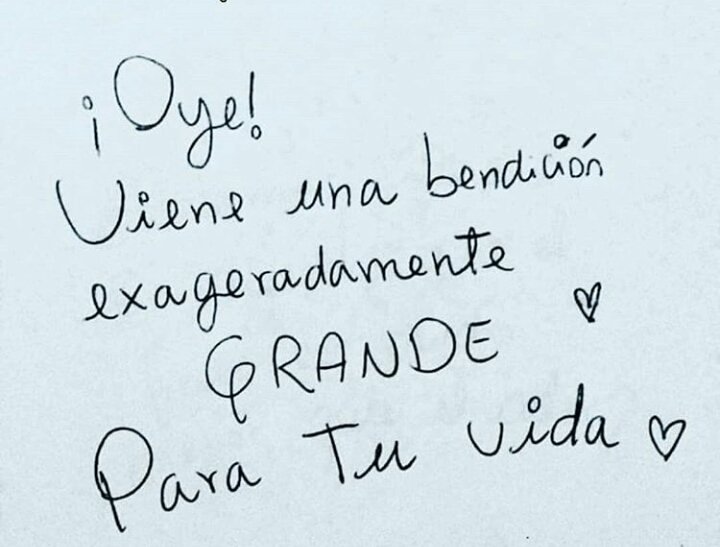 ¡Oye!
Viene una bendición
exageradamente
GRANDE ♡
Para Tu vida ♡